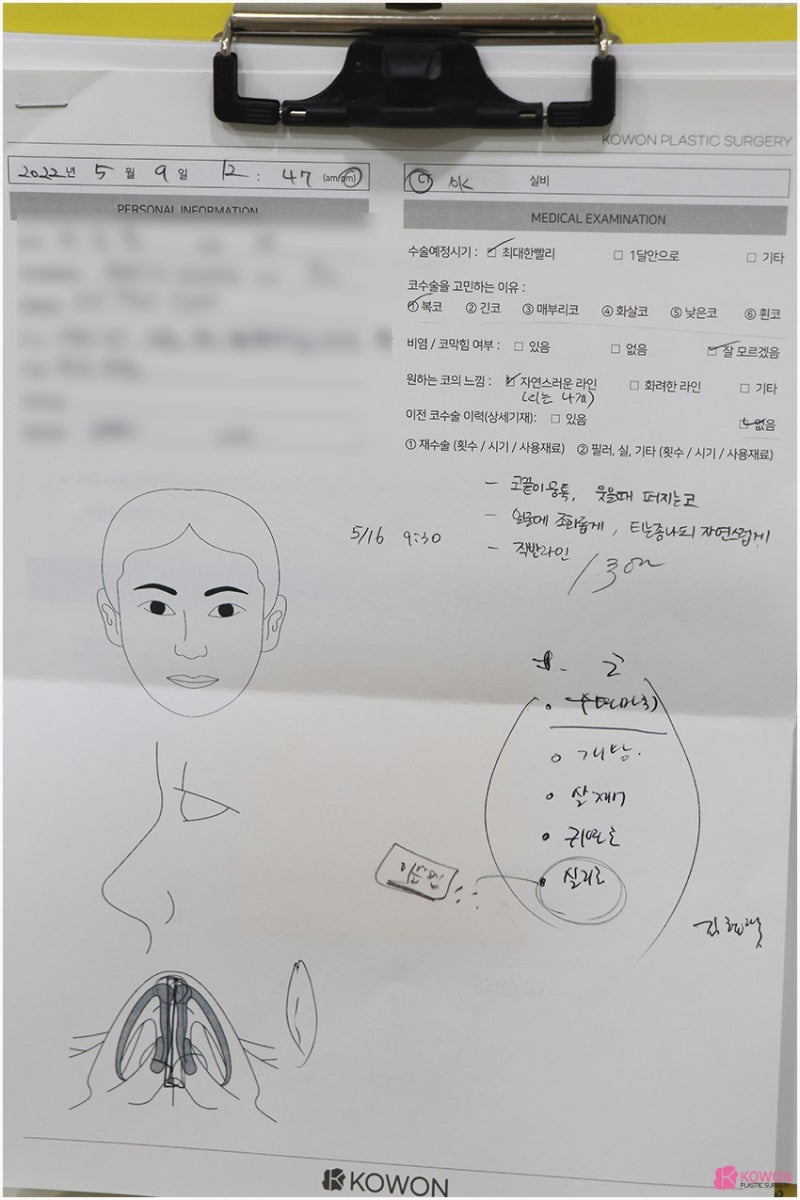 KOWON PLASTIC SURGERY
2022년 5월 9일 12 : 47 (am/pm)
CT OK 실비
PERSONAL INFORMATION
MEDICAL EXAMINATION
수술예정시기 : ☑ 최대한빨리 □ 1달안으로 □ 기타
코수술을 고민하는 이유 :
① 복코 ② 긴코 ③ 매부리코 ④ 화살코 ⑤ 낮은코 ⑥ 휜코
비염 / 코막힘 여부 : □ 있음 □ 없음 ☑ 잘 모르겠음
원하는 코의 느낌 : ☑ 자연스러운 라인 □ 화려한 라인 □ 기타
(티는 나게)
이전 코수술 이력(상세기재): □ 있음 ☑ 없음
① 재수술 (횟수 / 시기 / 사용재료) ② 필러, 실, 기타 (횟수 / 시기 / 사용재료)
- 코끝이 뭉툭, 웃을때 퍼지는코
- 얼굴에 조화롭게, 티는좀나되 자연스럽게
- 직반라인
5/16 9:30
코
수면마취
개방.
살제거
귀연골
실리콘
KOWON
KOWON
PLASTIC SURGERY